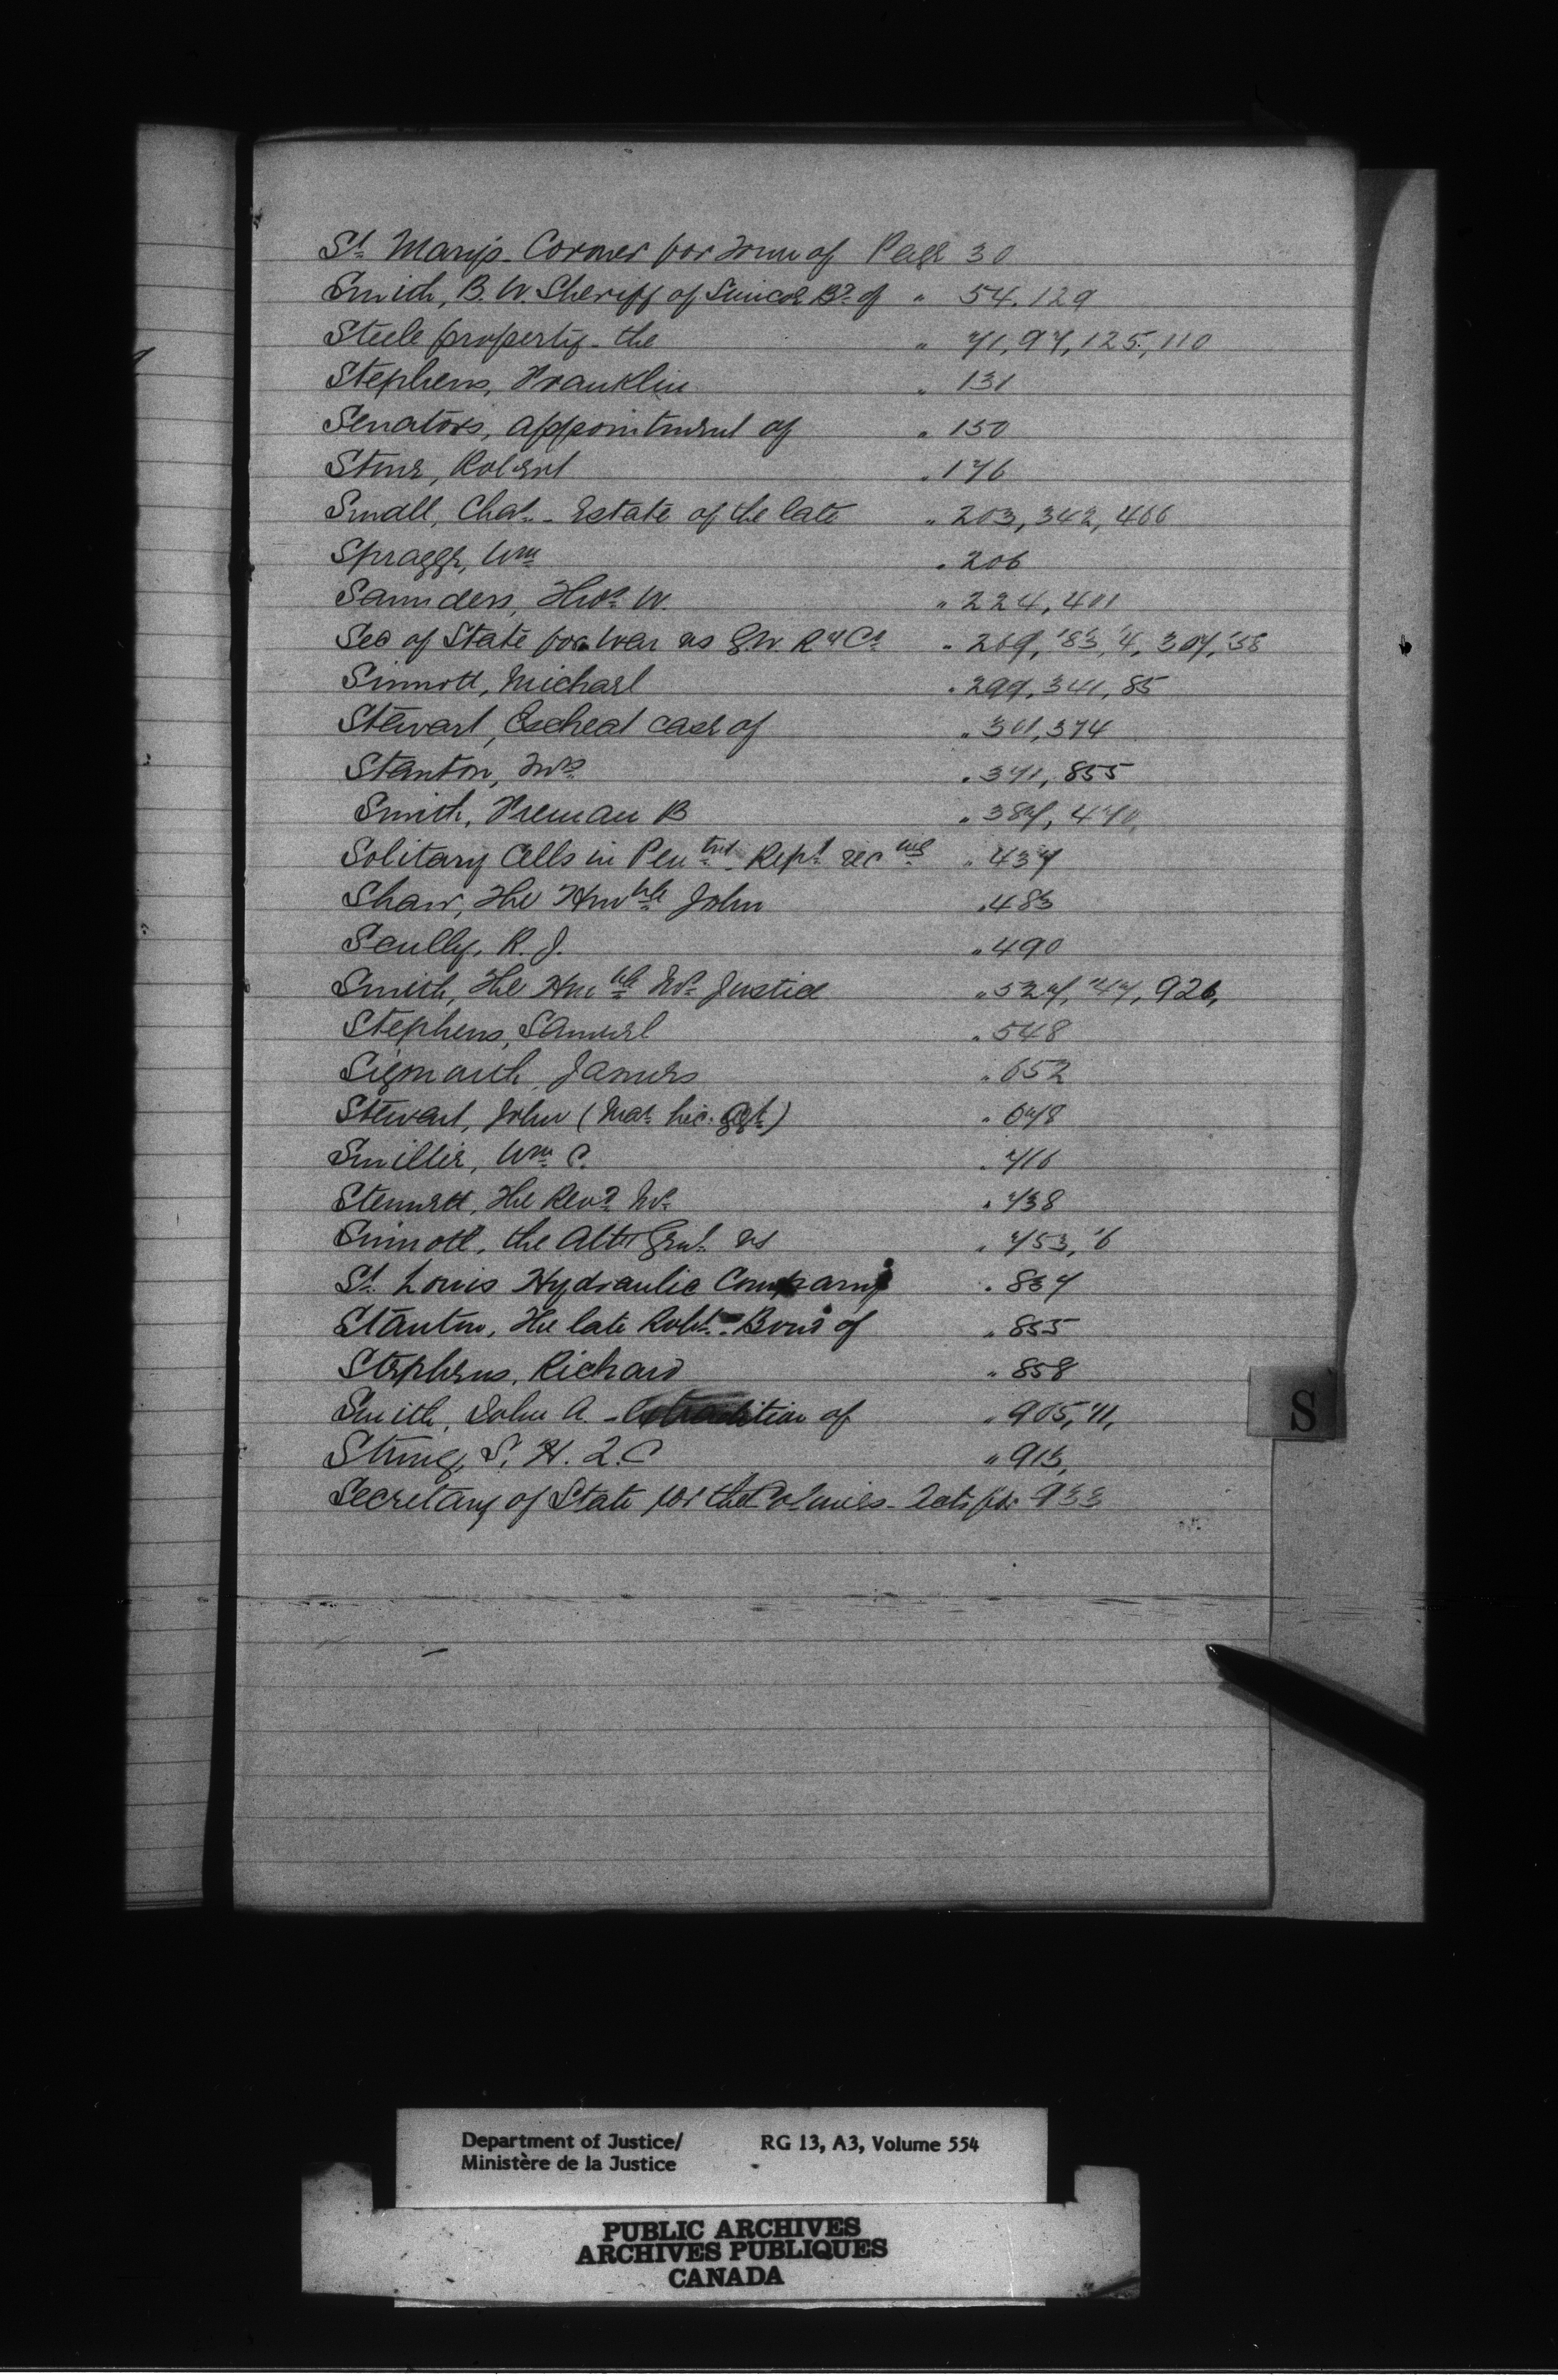 St. Mary's - Coroner for Town of Page 30
Smith, B. W. Sheriff of Simcoe Bd. of " 54, 129
Steele property - the " 71, 97, 125, 110
Stephens, Franklin " 131
Senators, appointment of " 150
Stone, Robert " 176
Small, Chas. - Estate of the late " 203, 342, 466
Spragge, Wm " 206
Saunders, Thos. W. " 224, 401
Sec of State for War vs G. W. Ry Co " 269, '83, '4, 307, '58
Sinnott, Michael " 299, 341, 85
Stewart, Escheat case of " 301, 374
Stanton, Mrs " 371, 855
Smith, Heman B " 387, 470,
Solitary Cells in Pen " Rept 437
Shaw, The Honble John " 483
Scully, R. J. " 490
Smith, The Honble Mr Justice " 527, '47, 926,
Stephens, Samuel " 548
James " 652
Stewart, John (Mar. Lic. Agt.) " 648
Smillie, Wm. C. " 716
Stennett, The Revd Mr " 738
Sinnott, the Atty Genl vs " 753, '6
St. Louis Hydraulic Company " 837
Stanton, the late Robt. - Bond of " 855
Stephens, Richard " 858
Smith, John A. - Extradition of " 905, '11,
Strong, S. H. Q.C " 913,
Secretary of State for the Colonies - 933
S
Department of Justice/ RG 13, A3, Volume 554
Ministère de la Justice
PUBLIC ARCHIVES
ARCHIVES PUBLIQUES
CANADA